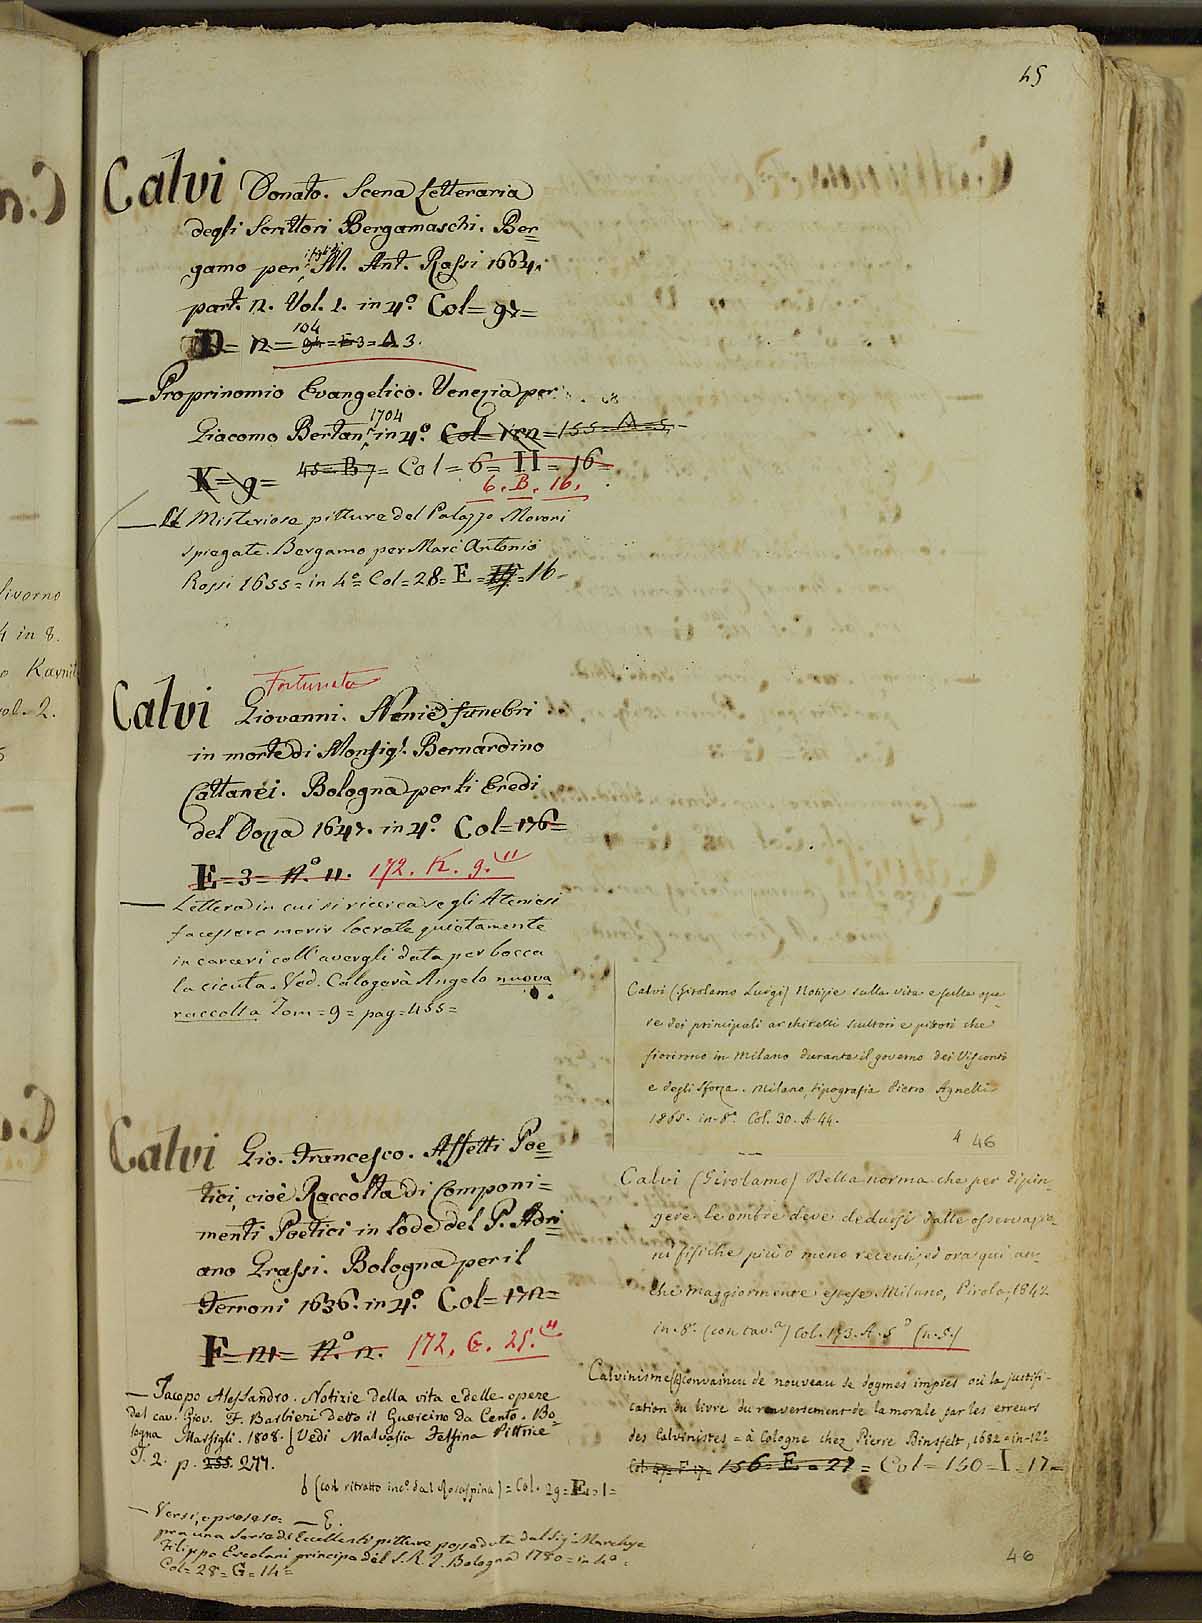 45
Calvi Donato. Scena Letteraria
degli Scrittori Bergamaschi. Ber=
gamo per M. Ant. Rossi 1664.
part. 2. Vol. 1. in 4.° Col= 97=
D= 12= 94=E3=A 3.
104
— Proprinomio Evangelico. Venezia per
Giacomo Bertani 1704 in 4.° Col= =155=A=5=
K= 9= 45=B 7= Col= 6= H= 16=
6. B. 16.
— Le Misteriose pitture del Palazzo Moroni
spiegate. Bergamo per Marc Antonio
Rossi 1655= in 4°= Col= 28= E= 16=
Fortunato
Calvi Giovanni. Nenie funebri
in morte di Monsig.r Bernardino
Cattanei. Bologna per li Eredi
del Dozza 1647. in 4.° Col=176=
E=3= N.° 11. 172. K. 9. 11
— Lettera in cui si ricerca se gli Ateniesi
facessero morir Socrate quietamente
in carceri coll'avergli data per bocca
la cicuta. Ved. Calogerà Angelo nuova
raccolta Tom=9= pag=455=
Calvi Gio. Francesco. Affetti Poe=
tici, cioè Raccolta di Componi=
menti Poetici in lode del P. Adri=
ano Grassi. Bologna per il
Ferroni 1636. in 4.° Col=172=
F= N.° 2. 172. G. 25.
— Jacopo Alessandro. Notizie della vita e delle opere
del cav. Giov. F. Barbieri detto il Guercino da Cento. Bo=
logna Marsigli. 1808. Vedi Malvasia Felsina Pittrice
T. 2. p. 255. 277.
(col ritratto inc.° dal Rosaspina)= Col. 29=E=1=
— Versi, e prose so= — E.
pra una serie di Eccellenti pitture possedute dal Sig.r Marchese
Filippo Ercolani principe del S. R. I. Bologna 1780= in 4°=
Col=28=G=14=
Calvi (Girolamo Luigi) Notizie sulla vita e sulle ope=
re dei principali architetti scultori e pittori che
fiorirono in Milano durante il governo dei Visconti
e degli Sforza. Milano, tipografia Pietro Agnelli
1865. in-8.° Col. 30. A. 44.
46
Calvi (Girolamo) Bella norma che per dipin=
gere le ombre deve dedursi dalle osservazio=
ni fisiche più o meno recenti, ed ora qui an=
che maggiormente estese Milano, Pirola, 1842
in. 8.° (con tav.a) Col. 173. A. 5° (n. 5.)
Calvinisme (le) convaincu de nouveau de dogmes impies ou la justifi-
cation du livre du renversement de la morale par les erreurs
des Calvinistes = à Cologne chez Pierre Binsfelt, 1682=in-12°
156=E=27= Col=150=I=17=
46